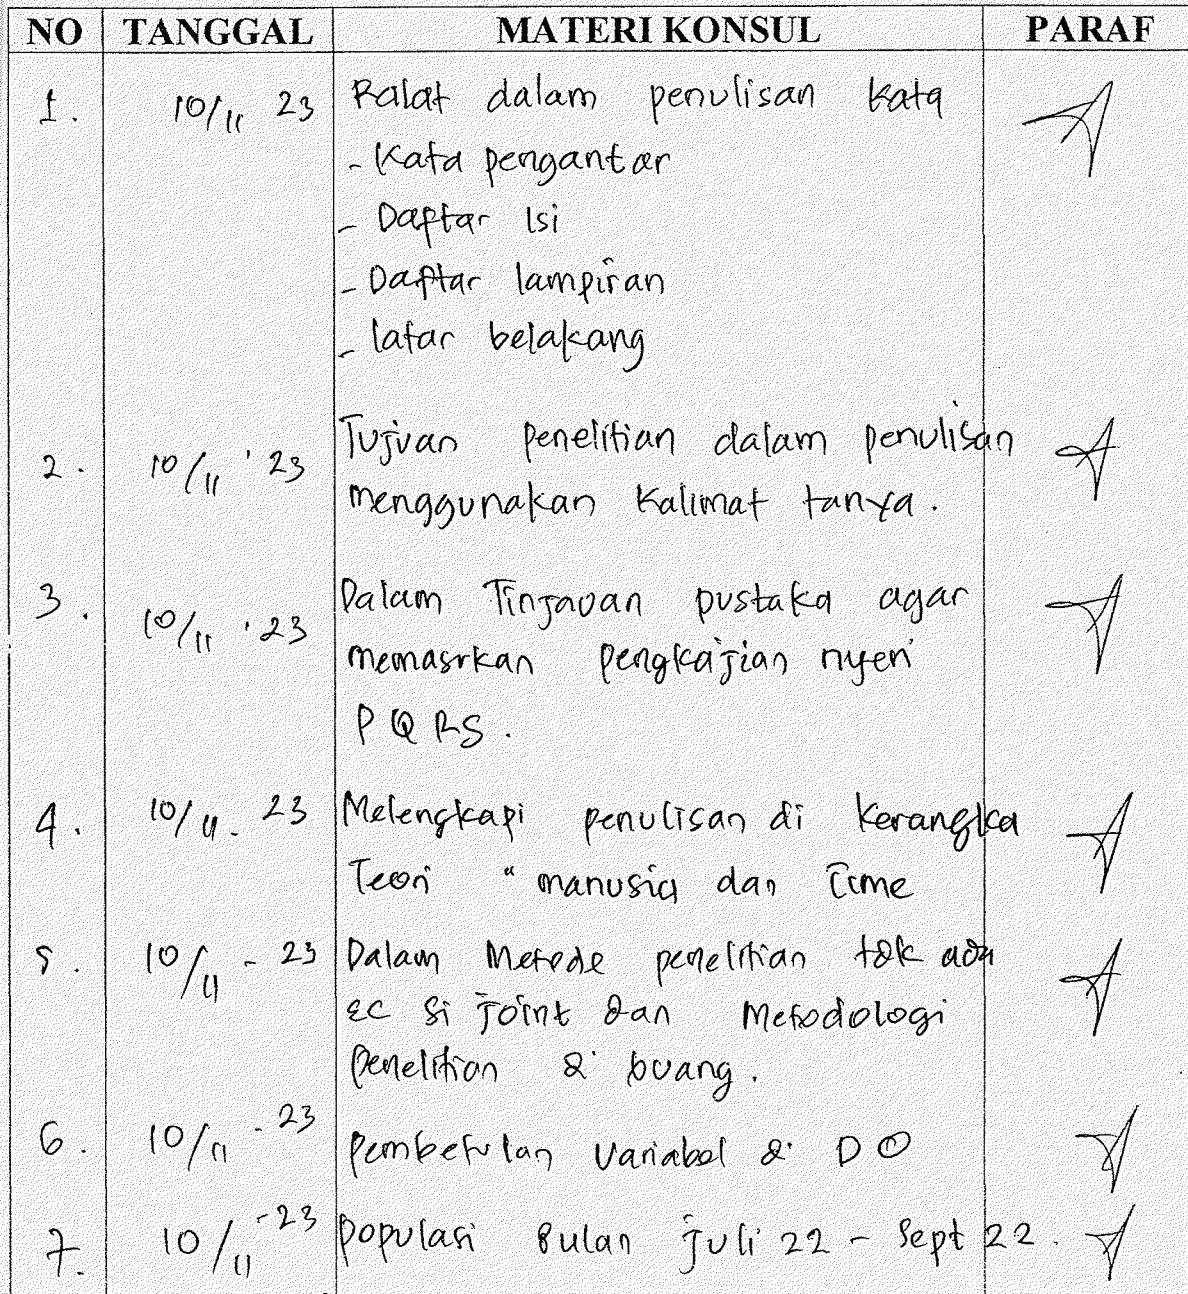 NO TANGGAL MATERI KONSUL PARAF
1. 10/11 23 Ralat dalam penulisan kata
- Kata pengantar
- Daftar Isi
- Daftar lampiran
- latar belakang
2. 10/11 '23 Tujuan penelitian dalam penulisan
menggunakan kalimat tanya.
3. 10/11 '23 Dalam Tinjauan pustaka agar
memasukan pengkajian nyeri
PQRS.
4. 10/11 - 23 Melengkapi penulisan di kerangka
Teori " manusia dan Time
5. 10/11 - 23 Dalam Metode penelitian tdk ada
joint dan Metodologi
penelitian di buang.
6. 10/11 - 23 pembetulan Variabel & DO
7. 10/11 - 23 populasi Bulan Juli 22 - Sept 22.